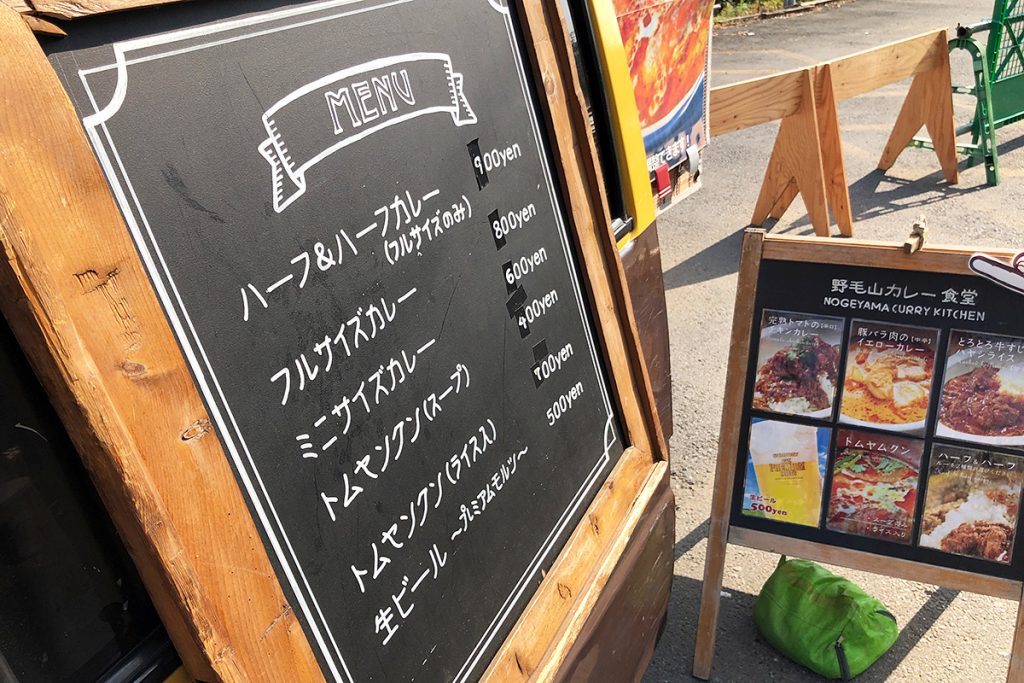 MENU
ハーフ&ハーフカレー 900yen
(フルサイズのみ)
フルサイズカレー 800yen
ミニサイズカレー 600yen
トムヤンクン(スープ) 400yen
トムヤンクン(ライス入) 700yen
生ビール 500yen
〜プレミアムモルツ〜
できます!
野毛山カレー食堂
NOGEYAMA CURRY KITCHEN
完熟トマトの
チキンカレー
豚バラ肉の【中辛】
イエローカレー
とろとろ牛すじ
ハヤシライス
生ビール
500yen
トムヤムクン
ハーフ&ハーフ